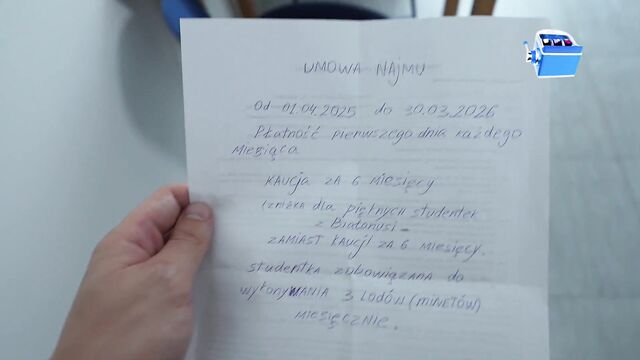 UMOWA NAJMU
Od 01.04.2025 do 30.03.2026
Płatność pierwszego dnia każdego
miesiąca
KAucja ZA 6 miesięcy
(zniżka dla pięknych studentek
z Białorusi –
ZAMIAST KAucji ZA 6 miesięcy.
studentka zobowiązana do
wykonyWANIA 3 LODÓW (MINETÓW)
miesięcznie.